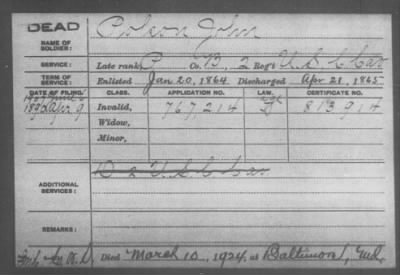 DEAD
NAME OF SOLDIER: Colson John
SERVICE: Late rank, P Co. B, 2 Reg't U.S.C. Cav
TERM OF SERVICE: Enlisted Jan 20, 1864 Discharged Apr 28, 1865
DATE OF FILING. CLASS. APPLICATION NO. LAW. CERTIFICATE NO.
Age
Apr 9 Invalid, 767,214 813914
Widow,
Minor,
ADDITIONAL SERVICES: D 2 U.S.C. Cav
REMARKS:
Died March 10, 1924, at Baltimore, Md.